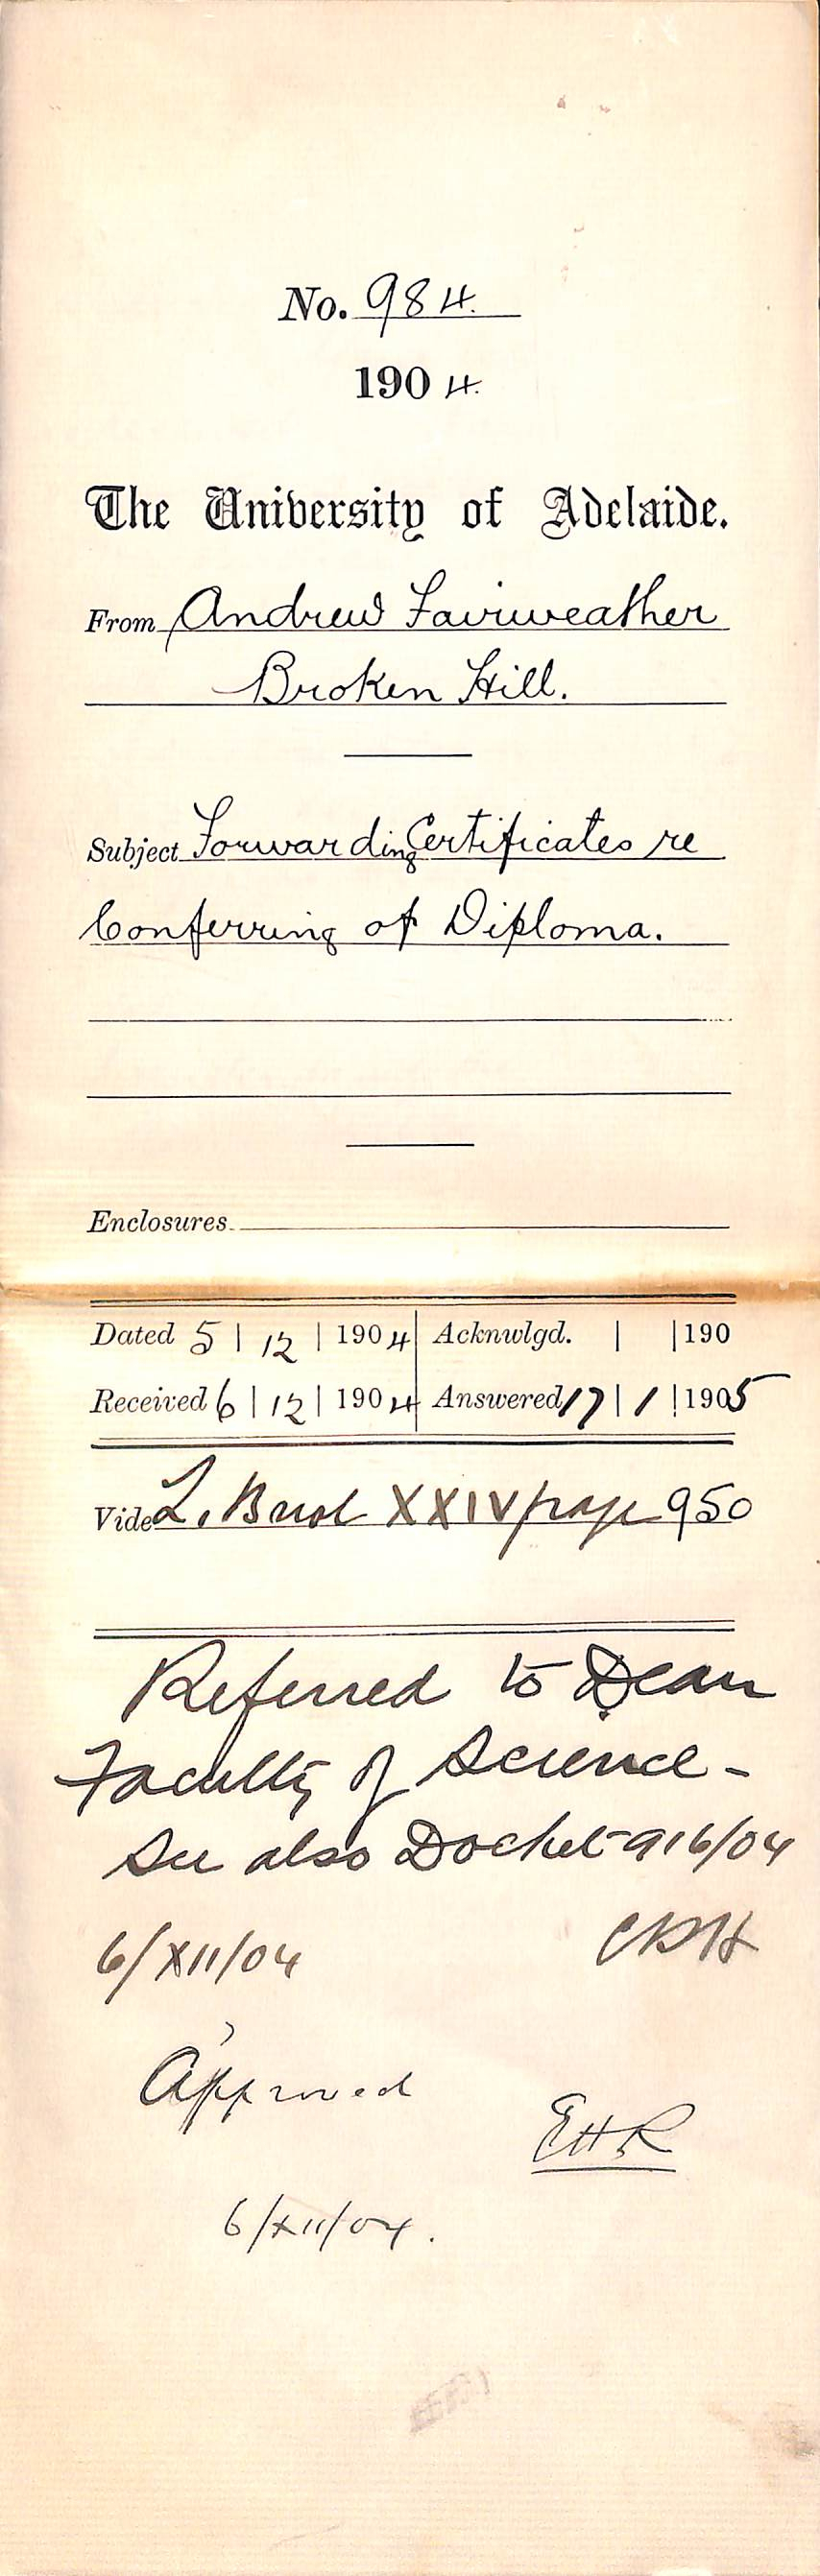 No. 984.
1904.
The University of Adelaide.
From Andrew Fairweather
Broken Hill.
Subject Forwarding Certificates re
Conferring of Diploma.
Enclosures
Dated 5 | 12 | 1904 Acknwlgd. | | 190
Received 6 | 12 | 1904 Answered 17 | 1 | 1905
Vide L. XXIV page 950
Referred to Dean
Faculty of Science -
See also Docket 916/04
6/XII/04 CRH
Approved
EHR
6/XII/04.